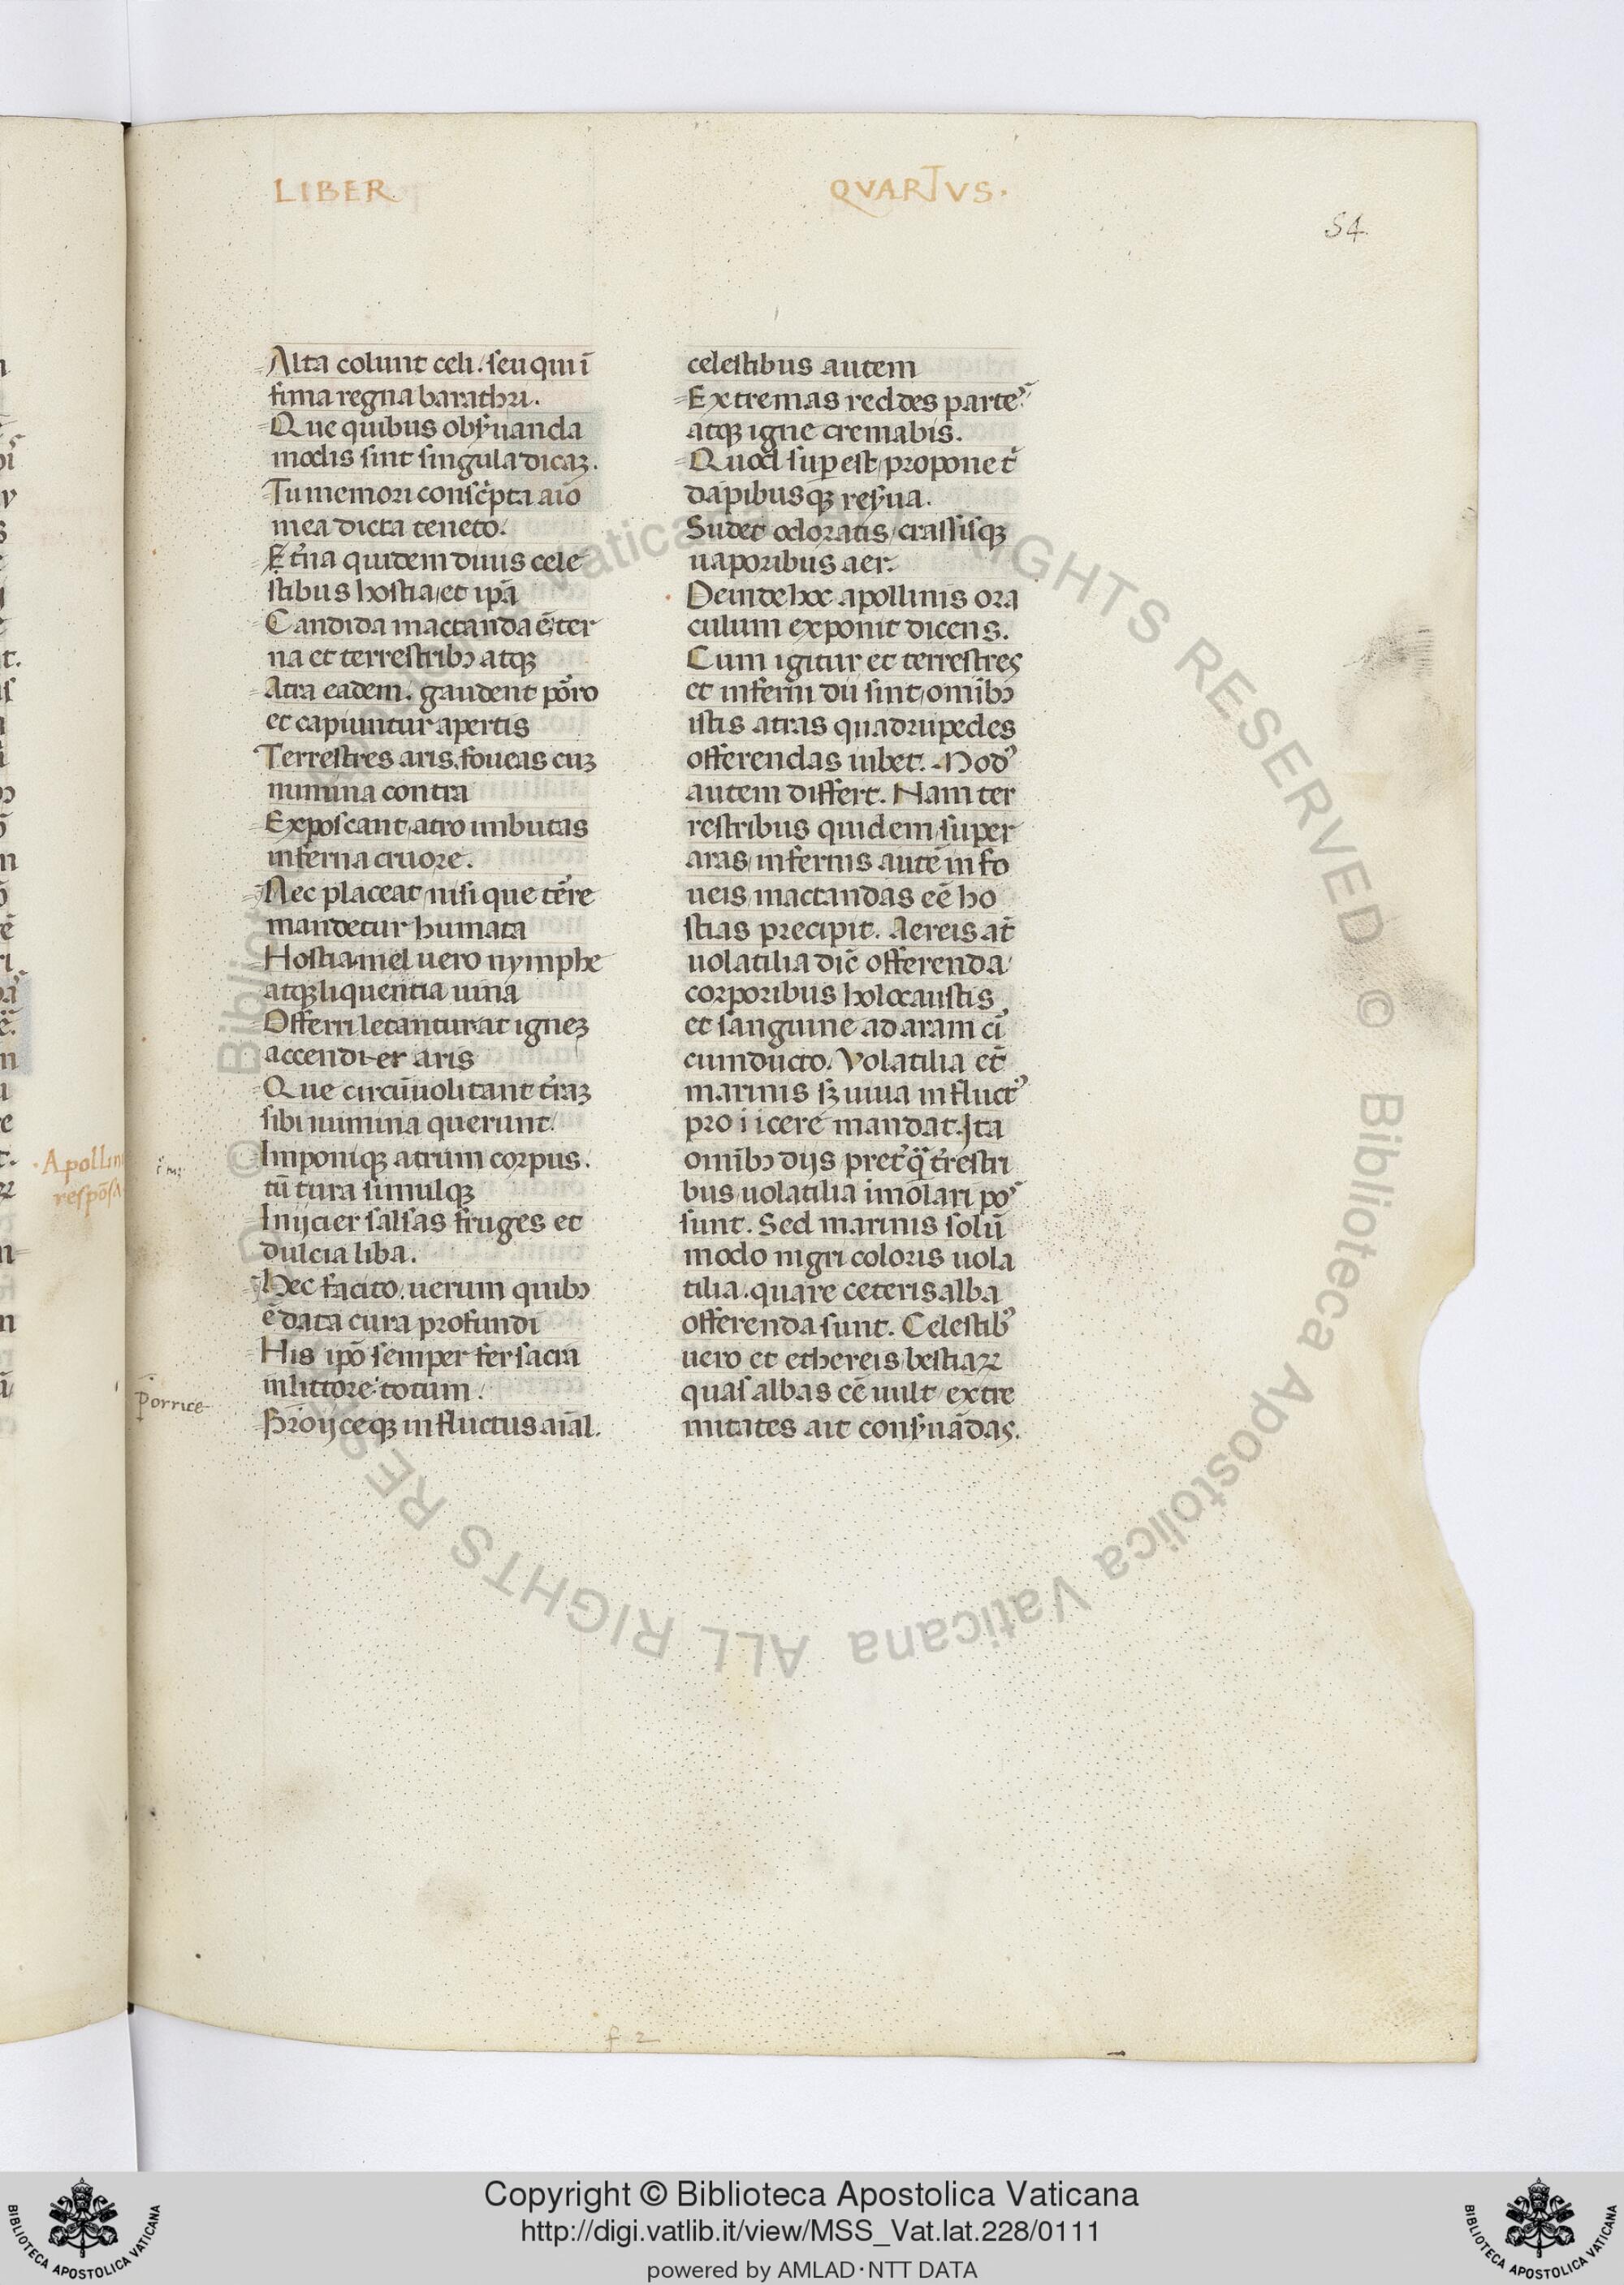 LIBER
QVARTVS.
54.
Alta colunt celi. seu qui ī
fima regna barathri.
Que quibus obẜuanda
modis sint singula dicaꝫ.
Tu memori consc̄pta aīo
mea dicta teneto.
Et̄na quidem diuis cele
stibus hostia/et ip̄a
Candida mactanda ē/ter
na et terrestribꝫ atqꝫ
Atra eadem. gaudent pōro
et capiuntur apertis
Terrestres aris. foueas cuꝫ
numina contra
Exposcant/atro imbutas
inferna cruore.
Nec placeat/nisi que tēre
mandetur humata
Hostia. mel uero nymphe
atqꝫ liquentia uina
Offerri letantur. at igneꝫ
accendi er aris
Que circūuolitant t̄raꝫ
sibi numina querunt.
Imponiqꝫ atrum corpus.
tū tura simulqꝫ
Iniicier salsas fruges et
dulcia liba.
Hec facito. uerum quibꝫ
ē data cura profundi
His ip̄o semper fer sacra
in littore. totum.
Proijceqꝫ in fluctus aīal.
celestibus autem
Extremas reddes parteˢ
atqꝫ igne cremabis.
Quod suꝑest/propone t̄
dapibusqꝫ reẜua.
Sudet odoratis/crassisqꝫ
uaporibus aer.
Deinde hoc apollinis ora
culum exponit dicens.
Cum igitur et terrestres
et inferni dii sint/omībꝫ
istis atras quadrupedes
offerendas iubet. Modꝰ
autem differt. Nam ter
restribus quidem/super
aras/infernis autē in fo
ueis/mactandas eē ho
stias precipit. Aereis at̄
uolatilia dic̄ offerenda/
corporibus holocaustis
et sanguine ad aram ci᷑
cumducto. Volatilia et̄
marinis sꝫ uiua in fluctꝰ
proiicere mandat. Ita
omībꝫ dijs pret᷑q̄ t̄restri
bus/uolatilia imolari poˢ
sunt. Sed marinis solū
modo nigri coloris uola
tilia. quare ceteris alba
offerenda sunt. Celestibꝰ
uero et ethereis/bestiaꝝ
quas albas eē uult/extre
mitates ait conẜuādas.
Apollin
respōsa
Porrice
f 2
© Biblioteca Apostolica Vaticana ALL RIGHTS RESERVED © Biblioteca Apostolica Vaticana ALL RIGHTS RESERVED
Copyright © Biblioteca Apostolica Vaticana
http://digi.vatlib.it/view/MSS_Vat.lat.228/0111
powered by AMLAD·NTT DATA
BIBLIOTECA APOSTOLICA VATICANA
BIBLIOTECA APOSTOLICA VATICANA